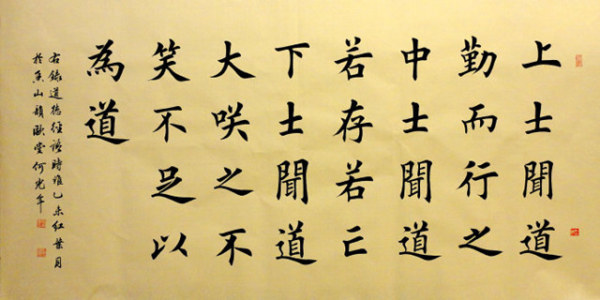 上士聞道
勤而行之
中士聞道
若存若亡
下士聞道
大咲之不
笑不足以
為道
右錄道德經語時維乙未紅葉月
於魚山堂何光年